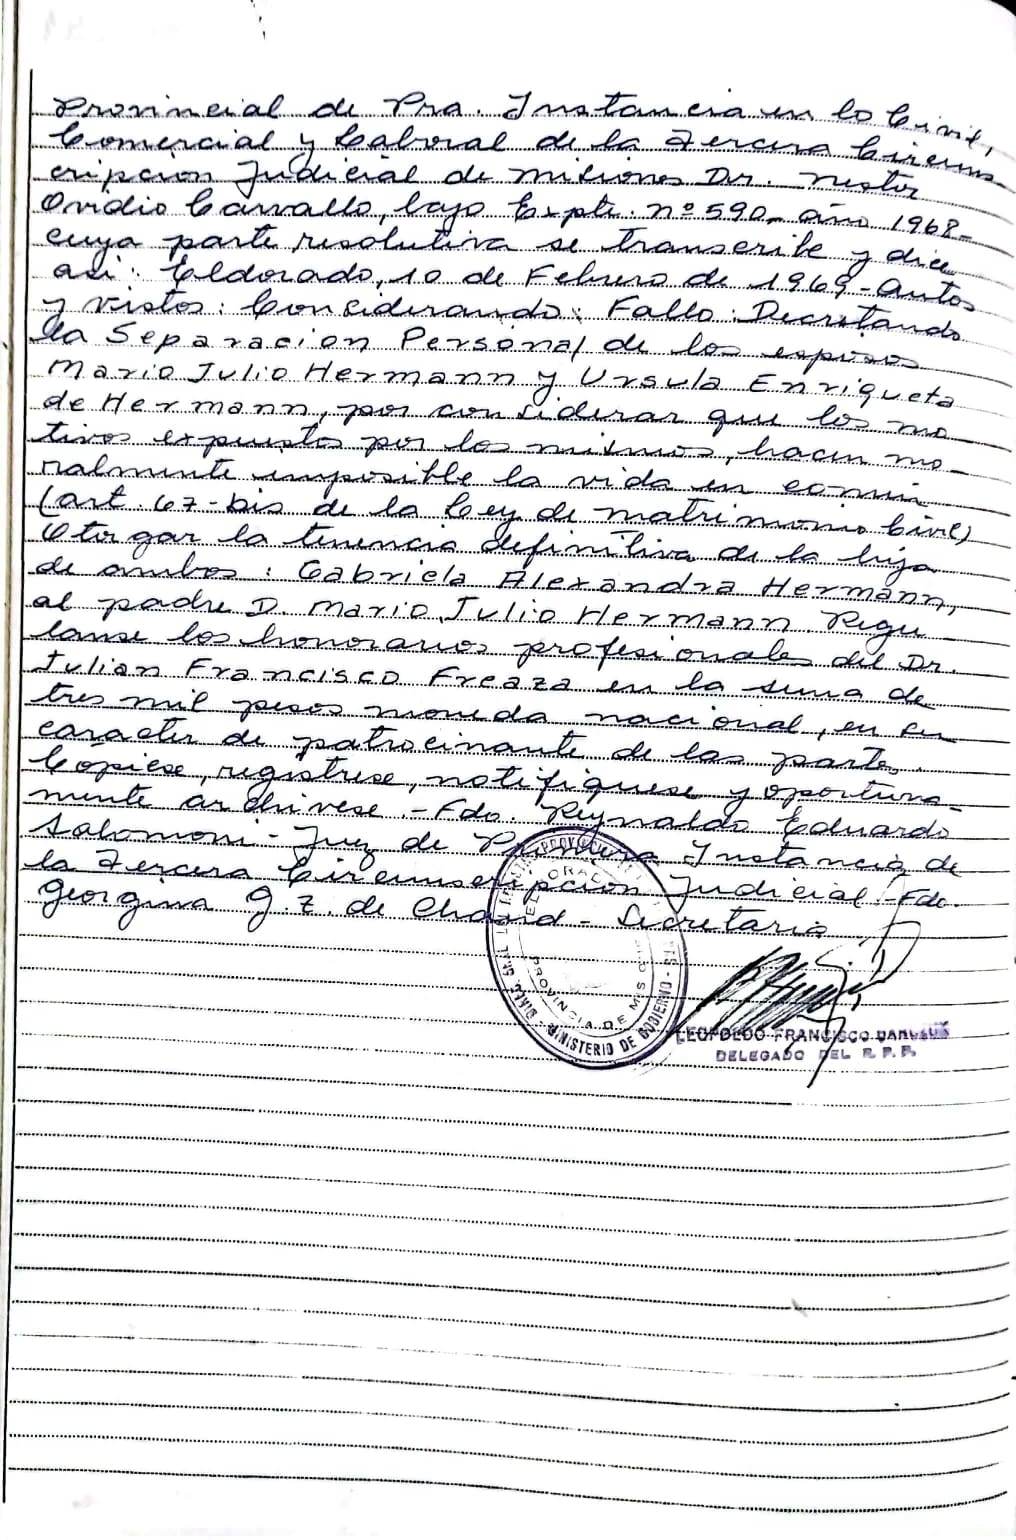 Provincial de Pra. Instancia en lo Civil,
Comercial y Laboral de la Tercera Circuns-
cripcion Judicial de Misiones Dr. Nestor
Ovidio Carvallo, bajo Expte. nº 590- año 1968-
cuya parte resolutiva se transcribe y dice
asi: Eldorado, 10 de Febrero de 1969- Autos
y vistos: Considerando: Fallo: Decretando
la Separacion Personal de los esposos
Mario Julio Hermann y Ursula Enriqueta
de Hermann, por considerar que los mo-
tivos expuestos por los mismos, hacen mo-
ralmente imposible la vida en comun
(art. 67-bis de la Ley de matrimonio Civil)
Otorgar la tenencia definitiva de la hija
de ambos: Gabriela Alexandra Hermann,
al padre D. Mario Julio Hermann. Regu
lanse los honorarios profesionales del Dr.
Julian Francisco Freaza en la suma de
tres mil pesos moneda nacional, en su
caracter de patrocinante de las partes.
Cópiese, regístrese, notifiquese y oportuna-
mente archivese.- Fdo. Reynaldo Eduardo
Salomoni- Juez de Primera Instancia de
la Tercera Circunscripcion Judicial.- Fdo.
Georgina G. Z. de Chand- Secretaria
PROVINCIA DE MISIONES
MINISTERIO DE GOBIERNO
LEOPOLDO FRANCISCO
DELEGADO DEL R. P. P.